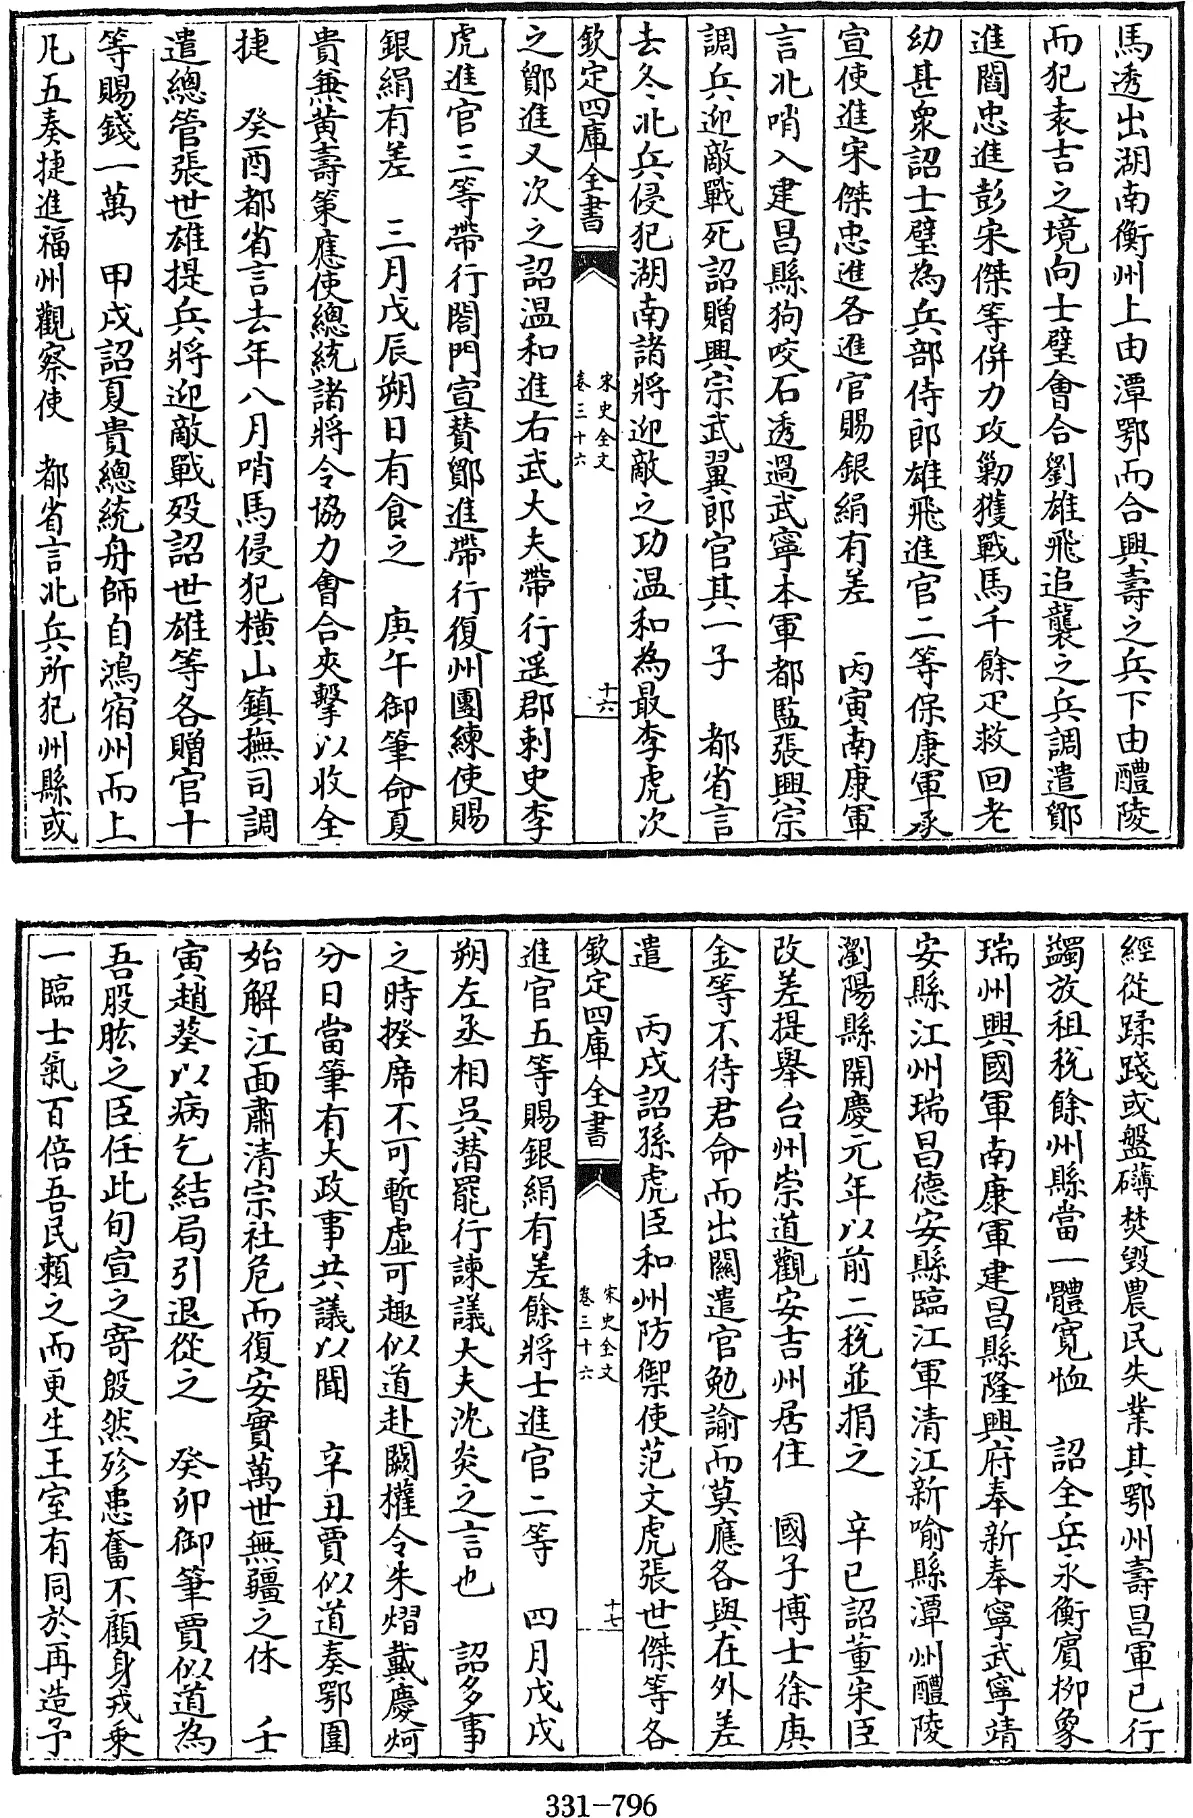 馬透出湖南衡州上由潭鄂而合興壽之兵下由醴陵
而犯袁吉之境向士璧會合劉雄飛追襲之兵調遣鄒
進閻忠進彭宋傑等併力攻勦獲戰馬千餘疋救回老
幼甚衆詔士璧為兵部侍郎雄飛進官二等保康軍承
宣使進宋傑忠進各進官賜銀絹有差　丙寅南康軍
言北哨入建昌縣狗咬石透過武寧本軍都監張興宗
調兵迎敵戰死詔贈興宗武翼郎官其一子　都省言
去冬北兵侵犯湖南諸將迎敵之功温和為最李虎次
欽定四庫全書
宋史全文
卷三十六
十六
之鄒進又次之詔温和進右武大夫帶行遥郡刺史李
虎進官三等帶行閤門宣贊鄒進帶行復州團練使賜
銀絹有差　三月戊辰朔日有食之　庚午御筆命夏
貴兼黄壽策應使總統諸將令協力會合夾擊以收全
捷　癸酉都省言去年八月哨馬侵犯横山鎮撫司調
遣總管張世雄提兵將迎敵戰殁詔世雄等各贈官十
等賜錢一萬　甲戌詔夏貴總統舟師自鴻宿州而上
凡五奏捷進福州觀察使　都省言北兵所犯州縣或
經從蹂踐或盤礴焚毁農民失業其鄂州壽昌軍已行
蠲放租税餘州縣當一體寛恤　詔全岳永衡賓柳象
瑞州興國軍南康軍建昌縣隆興府奉新奉寧武寧靖
安縣江州瑞昌德安縣臨江軍清江新喻縣潭州醴陵
瀏陽縣開慶元年以前二税並捐之　辛巳詔董宋臣
改差提舉台州崇道觀安吉州居住　國子博士徐庚
金等不待君命而出關遣官勉諭而莫應各與在外差
遣　丙戌詔孫虎臣和州防禦使范文虎張世傑等各
欽定四庫全書
宋史全文
卷三十六
十七
進官五等賜銀絹有差餘將士進官二等　四月戊戌
朔左丞相吳潛罷行諫議大夫沈炎之言也　詔多事
之時揆席不可暫虛可趣似道赴闕權令朱熠戴慶炣
分日當筆有大政事共議以聞　辛丑賈似道奏鄂圍
始解江面肅清宗社危而復安實萬世無疆之休　壬
寅趙葵以病乞結局引退從之　癸卯御筆賈似道為
吾股肱之臣任此旬宣之寄殷然殄患奮不顧身戎乘
一臨士氣百倍吾民賴之而更生王室有同於再造予
331-796